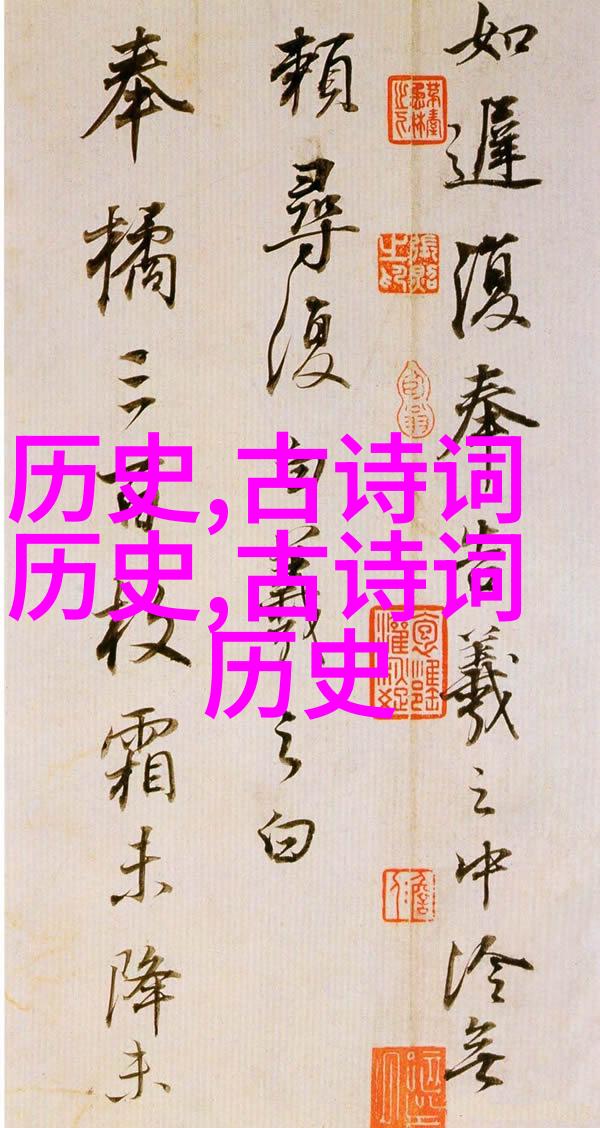 如遲復奉告羲之中冷無
賴尋復白羲之白
奉橘三百枚霜未降未
历史,古诗词
历史,古诗词
历史